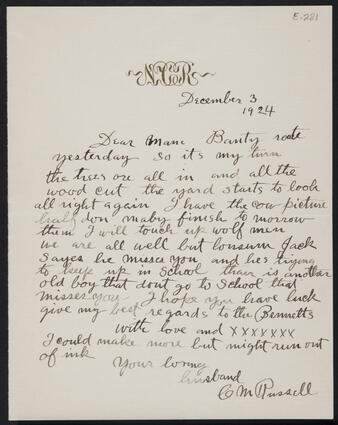 E-281
NCR
December 3
1924
Dear Mame Banty rote
yesterday so it's my turn
the trees are all in and all the
wood cut the yard starts to look
all right again I have the cow picture
half don maby finish to morrow
then I will touch up wolf men
we are all well but lonsum Jack
sayes he misse you and he's trying
to keep up in school thair is another
old boy that dont go to School that
misses you I hope you have luck
give my best regards to the Bennetts
with love and XXXXXXX
I could make more but might run out
of ink
Your loving
husband
C M Russell